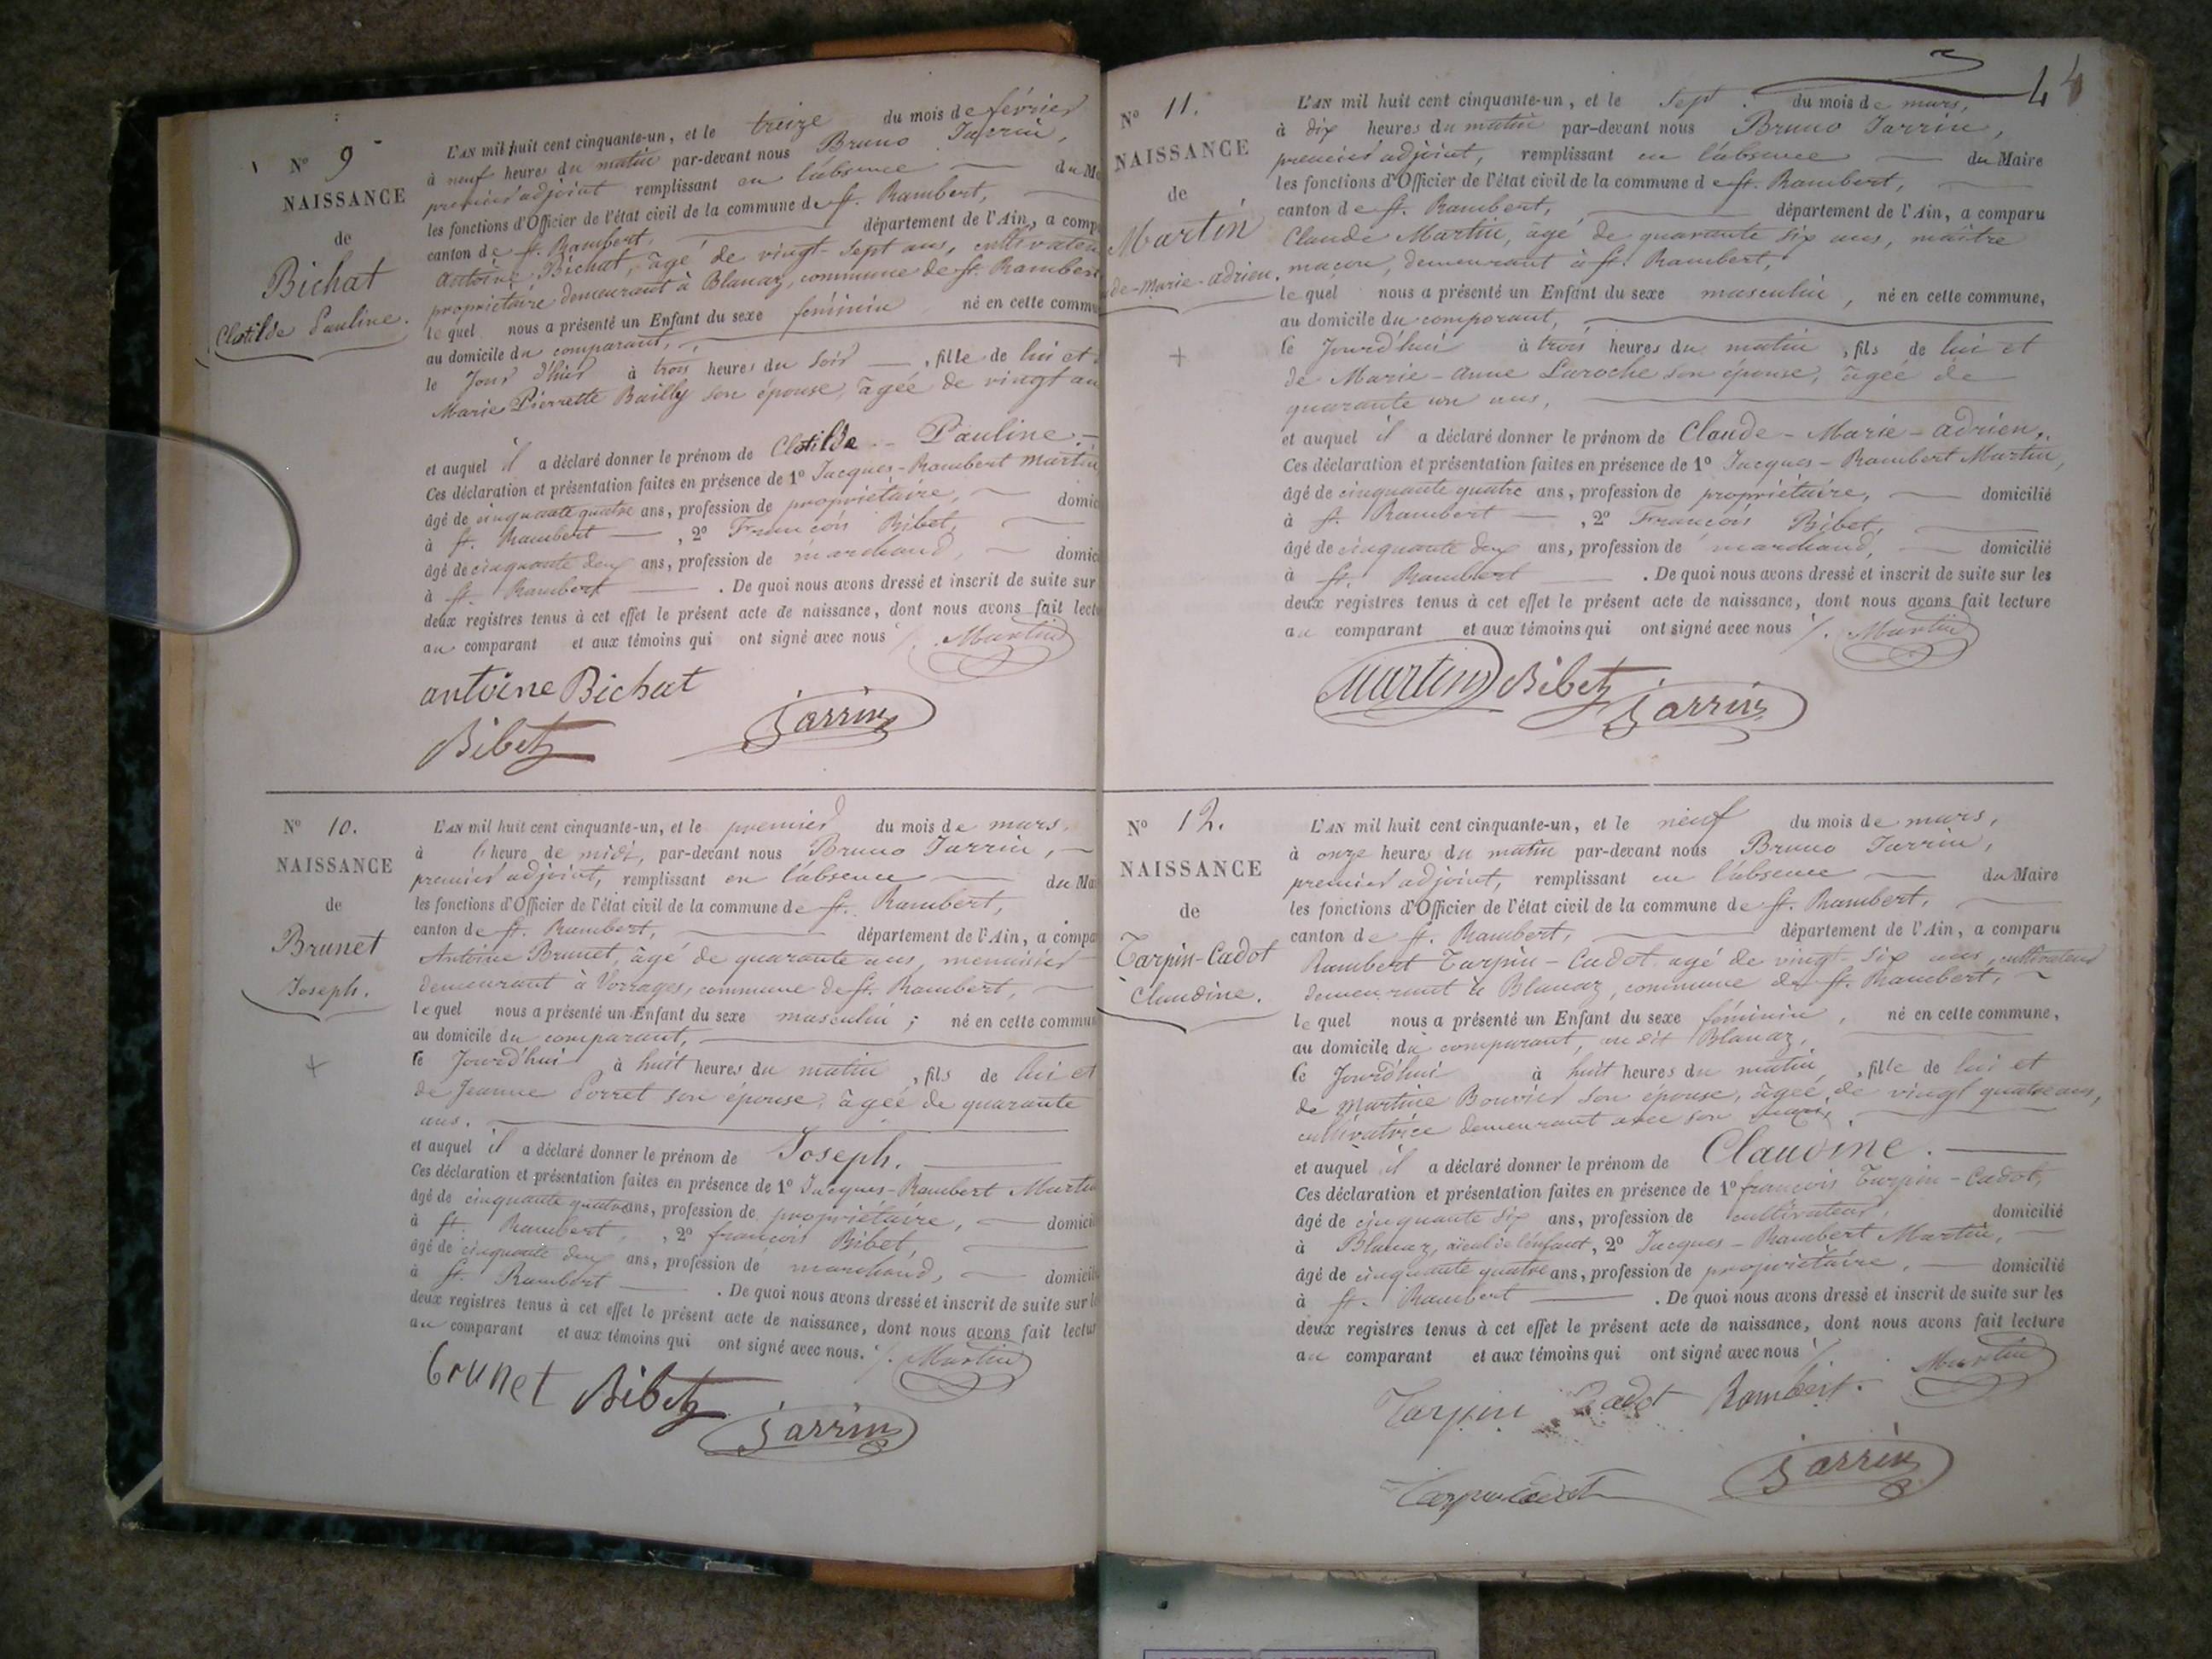 N° 9
NAISSANCE
de
Bichat
Clotilde Pauline.
L'AN mil huit cent cinquante-un, et le treize du mois de février
à neuf heures du matin par-devant nous Bruno Jarrin,
premier adjoint remplissant en l'absence du M
les fonctions d'Officier de l'état civil de la commune de St. Rambert,
canton de St. Rambert, département de l'Ain, a comp
Antoine Bichat, âgé de vingt-sept ans, cultivateur
propriétaire demeurant à Blanaz, commune de St. Rambert
lequel nous a présenté un Enfant du sexe féminin né en cette commu
au domicile du comparant,
le Jour d'hier à trois heures du soir, fille de lui et
Marie Pierrette Bailly son épouse, âgée de vingt an
et auquel il a déclaré donner le prénom de Clotilde Pauline.
Ces déclaration et présentation faites en présence de 1° Jacques-Rambert Martin
âgé de cinquante quatre ans, profession de propriétaire, domic
à St. Rambert, 2° François Bibet,
âgé de cinquante deux ans, profession de marchand, domic
à St. Rambert. De quoi nous avons dressé et inscrit de suite sur
deux registres tenus à cet effet le présent acte de naissance, dont nous avons fait lect
au comparant et aux témoins qui ont signé avec nous /. Martin
antoine Bichat
Bibet Jarrin
N° 10.
NAISSANCE
de
Brunet
Joseph.
+
L'AN mil huit cent cinquante-un, et le premier du mois de mars,
à l'heure de midi, par-devant nous Bruno Jarrin,
premier adjoint, remplissant en l'absence du Ma
les fonctions d'Officier de l'état civil de la commune de St. Rambert,
canton de St. Rambert, département de l'Ain, a compa
Antoine Brunet, âgé de quarante ans, menuisier
demeurant à Vorages, commune de St. Rambert,
lequel nous a présenté un Enfant du sexe masculin; né en cette commun
au domicile du comparant,
ce Jourd'hui à huit heures du matin, fils de lui et
de Jeanne Porret son épouse, âgée de quarante
ans.
et auquel il a déclaré donner le prénom de Joseph.
Ces déclaration et présentation faites en présence de 1° Jacques-Rambert Martin
âgé de cinquante quatre ans, profession de propriétaire, domicil
à St. Rambert, 2° françois Bibet,
âgé de cinquante deux ans, profession de marchand, domicil
à St. Rambert. De quoi nous avons dressé et inscrit de suite sur l
deux registres tenus à cet effet le présent acte de naissance, dont nous avons fait lectur
au comparant et aux témoins qui ont signé avec nous. /. Martin
brunet Bibet
Jarrin
4
N° 11.
NAISSANCE
de
Martin
de-Marie-adrien.
+
L'AN mil huit cent cinquante-un, et le sept du mois de mars,
à dix heures du matin par-devant nous Bruno Jarrin,
premier adjoint, remplissant en l'absence du Maire
les fonctions d'Officier de l'état civil de la commune de St. Rambert,
canton de St. Rambert, département de l'Ain, a comparu
Claude Martin, âgé de quarante six ans, maître
maçon, demeurant à St. Rambert,
lequel nous a présenté un Enfant du sexe masculin, né en cette commune,
au domicile du comparant,
ce Jourd'hui à trois heures du matin, fils de lui et
de Marie-Anne Laroche son épouse, âgée de
quarante un ans,
et auquel il a déclaré donner le prénom de Claude-Marie-adrien,
Ces déclaration et présentation faites en présence de 1° Jacques-Rambert Martin,
âgé de cinquante quatre ans, profession de propriétaire, domicilié
à St. Rambert, 2° François Bibet,
âgé de cinquante deux ans, profession de marchand, domicilié
à St. Rambert. De quoi nous avons dressé et inscrit de suite sur les
deux registres tenus à cet effet le présent acte de naissance, dont nous avons fait lecture
au comparant et aux témoins qui ont signé avec nous /. Martin
Martin Bibet Jarrin
N° 12.
NAISSANCE
de
Tarpin-Cadot
Claudine.
L'AN mil huit cent cinquante-un, et le neuf du mois de mars,
à onze heures du matin par-devant nous Bruno Jarrin,
premier adjoint, remplissant en l'absence du Maire
les fonctions d'Officier de l'état civil de la commune de St. Rambert,
canton de St. Rambert, département de l'Ain, a comparu
Rambert Tarpin-Cadot âgé de vingt-six ans, cultivateur
demeurant à Blanaz, commune de St. Rambert,
lequel nous a présenté un Enfant du sexe féminin, né en cette commune,
au domicile du comparant, au dit Blanaz,
ce Jourd'hui à huit heures du matin, fille de lui et
de Martine Bouvier son épouse, âgée de vingt quatre ans,
cultivatrice demeurant avec son mari,
et auquel il a déclaré donner le prénom de Claudine.
Ces déclaration et présentation faites en présence de 1° françois Tarpin-Cadot,
âgé de cinquante six ans, profession de cultivateur, domicilié
à Blanaz, aïeul de l'enfant, 2° Jacques-Rambert Martin,
âgé de cinquante quatre ans, profession de propriétaire, domicilié
à St. Rambert. De quoi nous avons dressé et inscrit de suite sur les
deux registres tenus à cet effet le présent acte de naissance, dont nous avons fait lecture
au comparant et aux témoins qui ont signé avec nous /. Martin
Tarpin Cadot Rambert.
Tarpin Cadot Jarrin